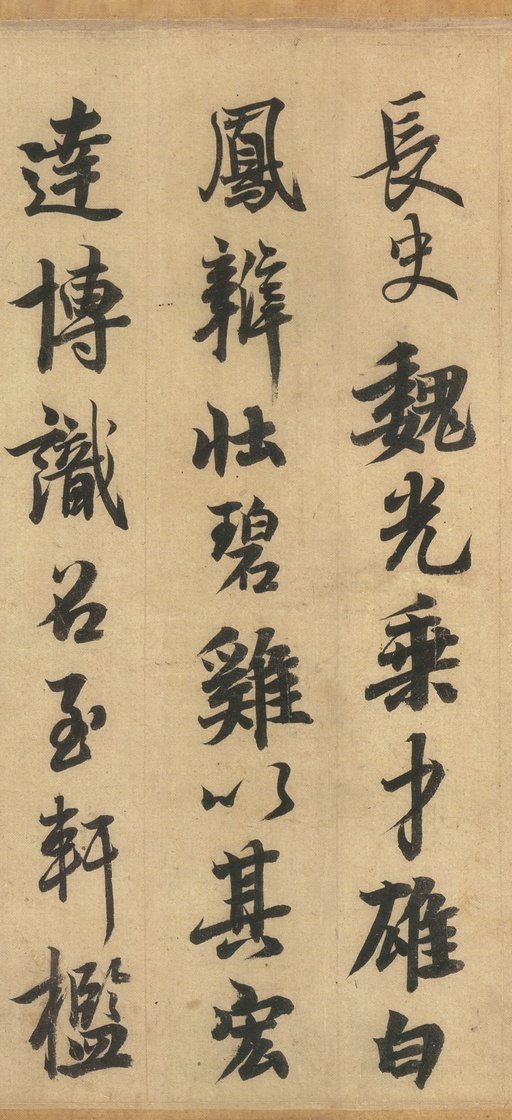 長史魏光乘才雄白
鳳辯壯碧雞以其宏
達博識召至軒檻